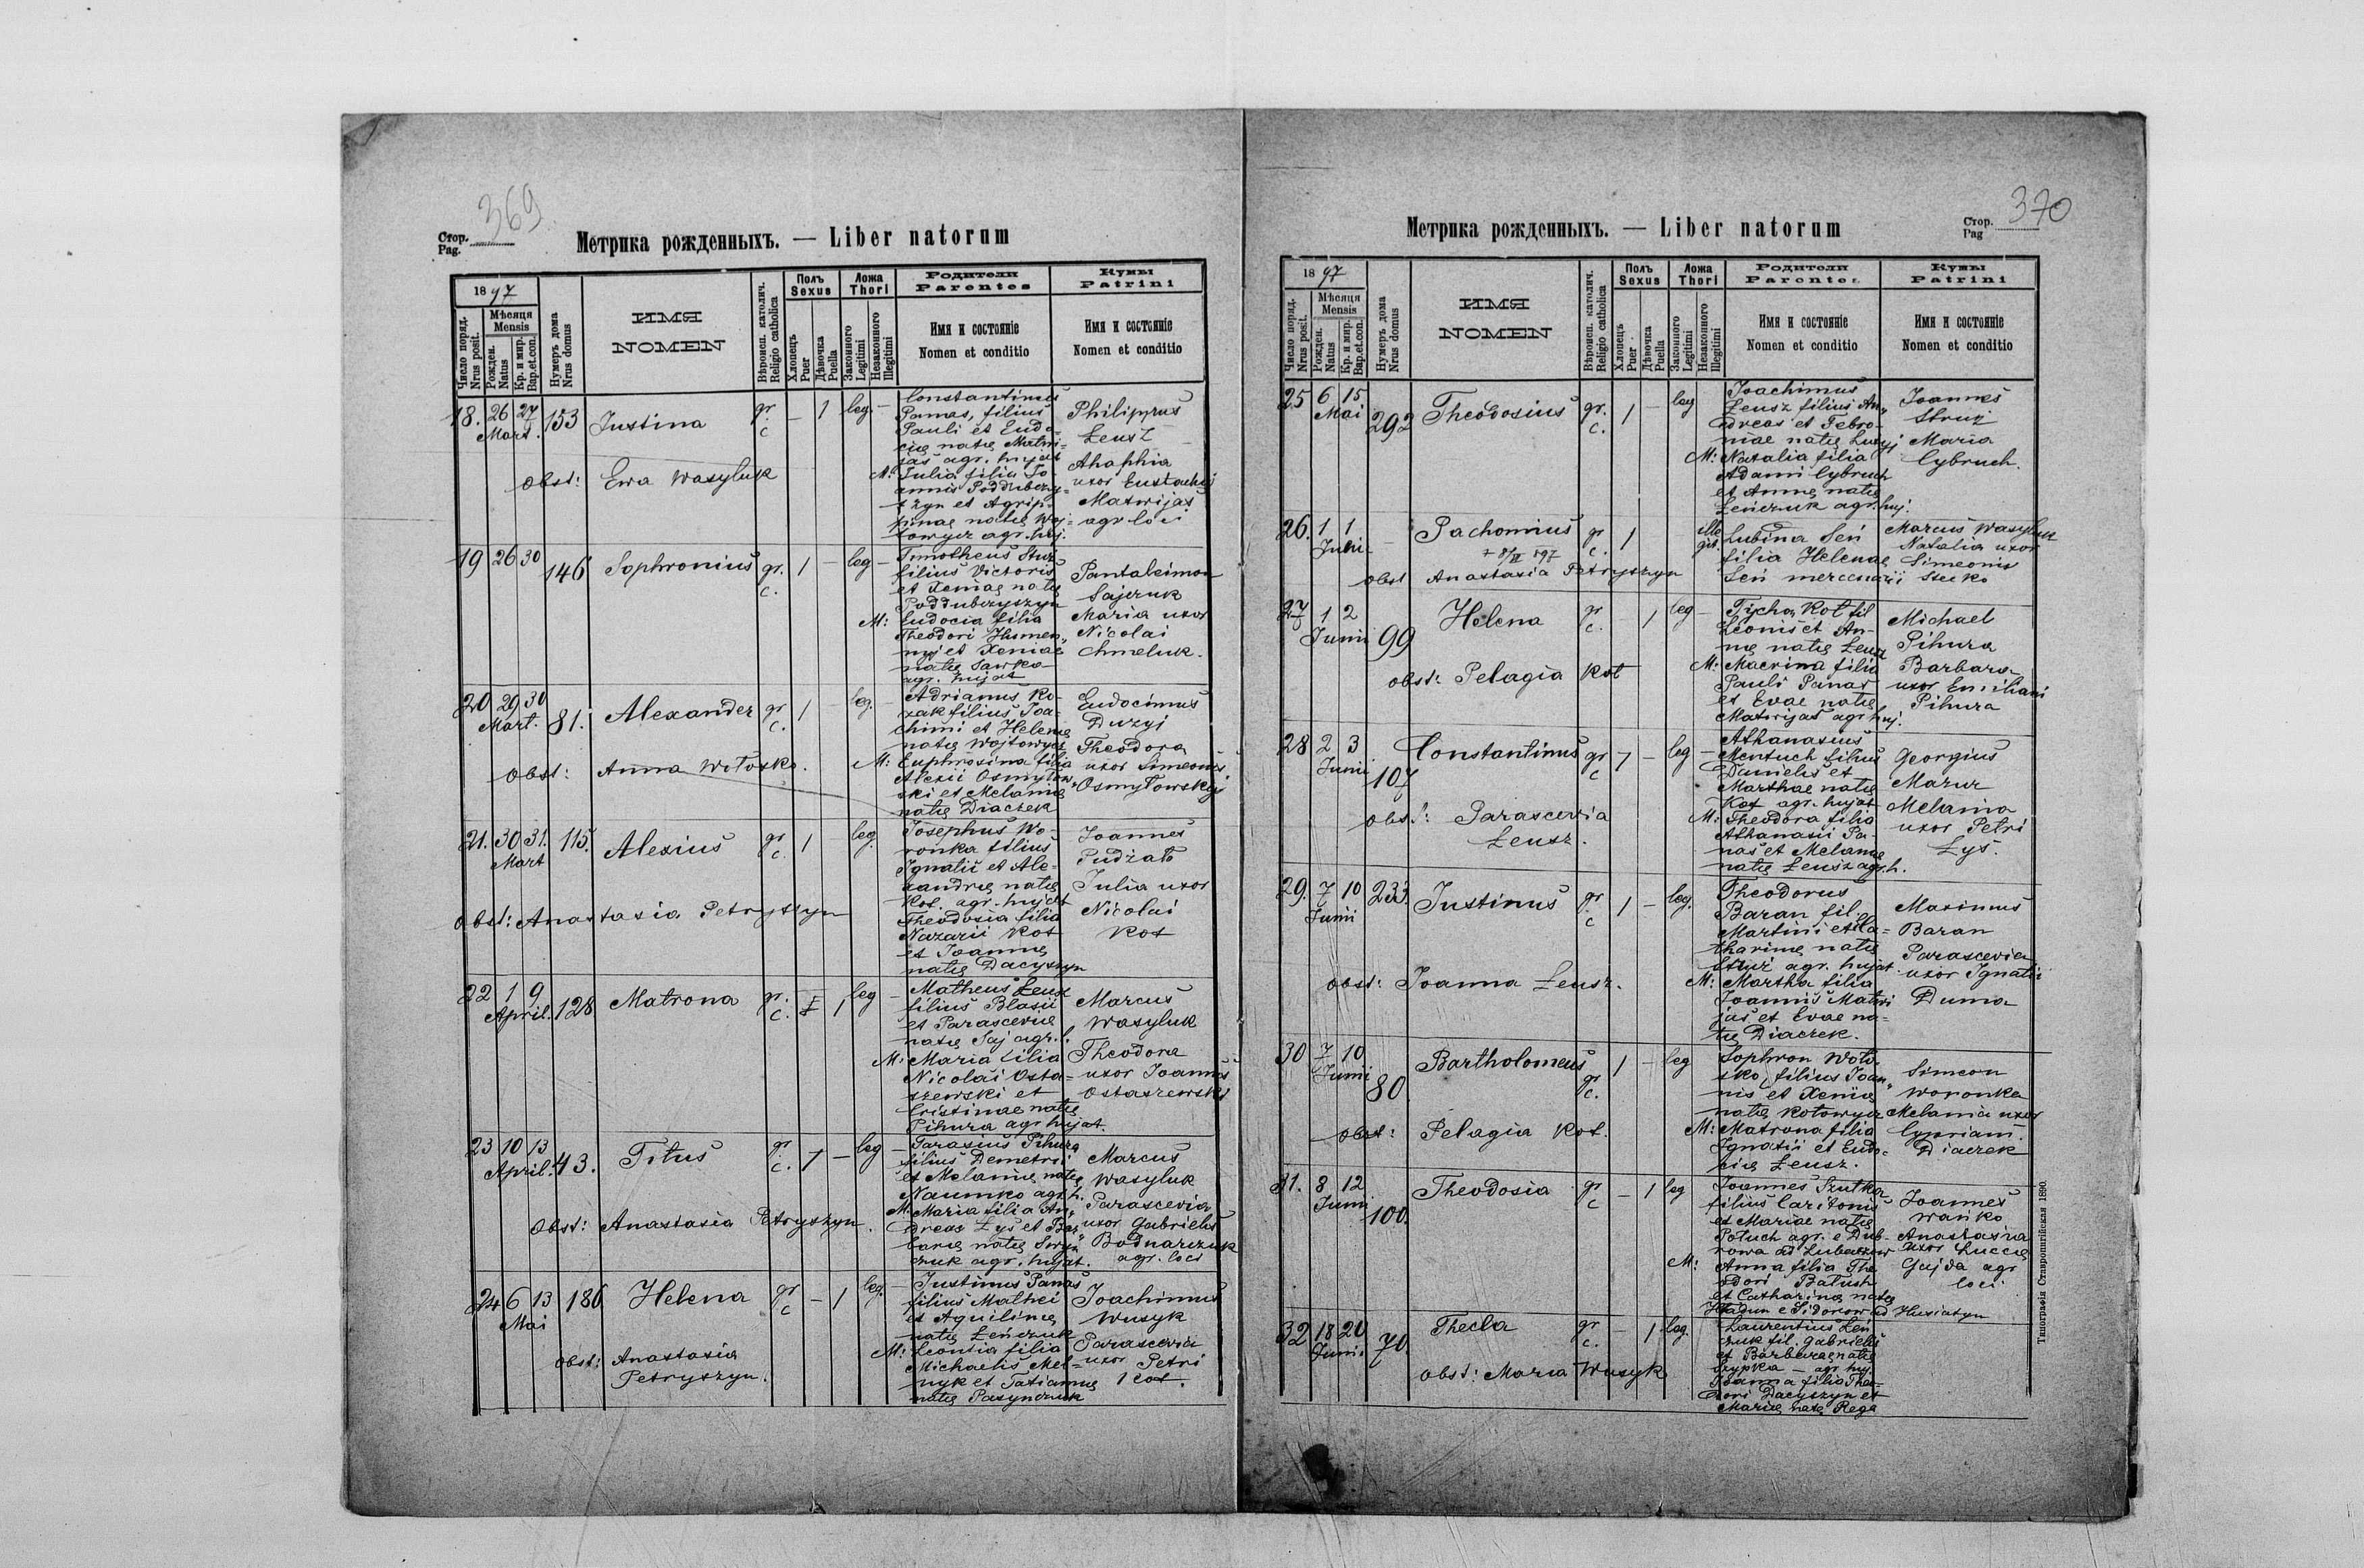 369
Стор.
Pag.
Метрика рожденныхъ. — Liber natorum
1897
Число поряд.
Nrus posit.
Мѣсяця
Mensis
Рожден.
Natus
Кр. и мир.
Bap.et.con.
Нумеръ дома
Nrus domus
ИМЯ
NOMEN
Вѣроисп. католич.
Religio catholica
Полъ
Sexus
Хлопецъ
Puer
Дѣвочка
Puella
Ложа
Thori
Законного
Legitimi
Незаконного
Illegitimi
Родители
Parentes
Имя и состоянie
Nomen et conditio
Кумы
Patrini
Имя и состоянie
Nomen et conditio
18. 26 27 Mart. 153 Justina gr. c — 1 leg. —
Constantinus
Panas, filius
Pauli et Eudo-
cię natę Matwi-
jas agr. hujat
M: Julia filia Jo-
annis Poddubczy-
szyn et Agrip-
pinae natę Woj-
towycz agr. huj.
Philippus
Łeusz
Ahaphia
uxor Eustachij
Matwijas
agr loci
obst: Ewa Wasyluk
19 26 30 146 Sophronius gr. c. 1 — leg —
Timotheus Stuz
filius Victoris
et Xenię natę
Poddubczyszyn
M: Eudocia filia
Theodori
nyj et Xeniae
natę Sawka
agr. hujat
Pantaleimon
Sajczuk
Maria uxor
Nicolai
Chmeluk.
20 29 30 Mart. 81. Alexander gr c. 1 — leg. —
Adrianus Ko-
zak filius Joa-
chimi et Helenę
natę Wojtowycz
M: Euphrosina filia
Alexii Osmyłow-
ski et Melanię
natę Diaczek
Eudocimus
Duzyj
Theodora
uxor Simeonis
Osmyłowskyj
obst: Anna Wołoszko.
21. 30 31. Mart 115. Alexius gr c. 1 leg.
Josephus Wo-
ronka filius
Ignatii et Ale-
xandrę natę
Kot. agr. hujat
Theodosia filia
Nazarii Kot
et Joannę
natę Dacyszyn
Joannes
Pudżak
Julia uxor
Nicolai
Kot
obst: Anastasia Petryszyn
22 1 9 April. 128 Matrona gr. c. 1 leg —
Matheus Łeusz
filius Blasii
et Parascevię
natę Saj agr.
M: Maria filia
Nicolai Osta-
szewski et
Cristinae natę
Pihura agr hujat.
Marcus
Wasyluk
Theodora
uxor Joannis
Ostaszewski
23 10 13 April. 43. Titus gr c. 1 — leg —
Tarasius Pihura
filius Demetrii
et Melanię natę
Naumko agr h.
M. Maria filia An-
dreae Łys et Bar-
barę natę
czuk agr. hujat.
Marcus
Wasyluk
Parascevia
uxor Gabrielis
Bodnarczuk
agr. loci
Obst: Anastasia Petryszyn.
24 6 13 Mai 186 Helena gr c — 1 leg. —
Justinus Panas
filius Mathei
et Aquilinę
natę Łeńczuk
M: Leontia filia
Michaelis Mel-
nyk et Tatiannę
natę Pasynczuk
Joachimus
Wusyk
Parascevia
uxor Petri
Kot.
obst: Anastasia
Petryszyn.
Метрика рожденныхъ. — Liber natorum
Стор.
Pag
370
1897
Число поряд.
Nrus posit.
Мѣсяця
Mensis
Рожден.
Natus
Кр. и мир.
Bap.et.con.
Нумеръ дома
Nrus domus
ИМЯ
NOMEN
Вѣроисп. католич.
Religio catholica
Полъ
Sexus
Хлопецъ
Puer
Дѣвочка
Puella
Ложа
Thori
Законного
Legitimi
Незаконного
Illegitimi
Родители
Parentes
Имя и состоянie
Nomen et conditio
Кумы
Patrini
Имя и состоянie
Nomen et conditio
25 6 15 Mai 292 Theodosius gr. c. 1 — leg
Joachimus
Łeusz filius An-
dreas et Febro-
niae natę
M: Natalia filia
Adami Cybruch
et Annę natę
Łeńczuk agr. huj.
Joannes
Struz
Maria
Cybruch.
26. 1 1 Juni — Pachomius gr c. 1 ille git.
Lubina Seń
filia Helenae
Seń mercenarii
Marcus Wasyluk
Natalia uxor
Simeonis
Stecko
obst Anastasia Petryszyn
27 1 2 Junii 99 Helena gr c. — 1 leg —
Tycho Kot fil
Leonis et An-
nę natę Łeusz
M: Macrina filia
Pauli Panas
et Evae natę
Matwijas agr huj.
Michael
Pihura
Barbara
uxor Emiliani
Pihura
obst: Pelagia Kot
28 2 3 Junii 107 Constantinus gr c 1 — leg —
Athanasius
Mentuch filius
Danielis et
Marthae natę
Kot agr. hujat
M: Theodora filia
Athanasii Pa-
nas et Melanię
natę Łeusz agr h.
Georgius
Mazur
Melania
uxor Petri
Łys.
obst: Parascevia
Łeusz.
29. 7 10 Junii 233. Justinus gr c 1 — leg.
Theodorus
Baran fil.
Martini et Ca-
tharinę natę
Stuz agr. hujat
M: Martha filia
Joannis Matwi
jas et Evae na-
tę Diaczek.
Maximus
Baran
Parascevia
uxor Ignatii
Duma
obst: Joanna Łeusz.
30 7 10 Junii 80. Bartholomeus gr c. 1 — leg
Sophron Woło-
szko, filius Joan-
nis et Xenię
natę Kotowycz
M: Matrona filia
Ignatii et Eudo-
cię Łeusz.
Simeon
Woronka
Melania uxor
Cypriani.
Diaczek
obst: Pelagia Kot.
31. 8 12 Junii 100. Theodosia gr c — 1 leg
Joannes Szutka
filius Caritonis
et Mariae natę
Potuch agr. e Dub-
rowa ad Lubaczow
M: Anna filia The
odori Batush
et Catharinę natę
Hladun e Sidorow ad Husiatyn
Joannes
Wańko
Anastasia
uxor Luccę
Gajda agr
loci
32 18 20 Junii 70. Thecla gr c. — 1 leg.
Laurentius Łeń
czuk fil. Gabrielis
et Barbarę natę
Szypka — agr huj.
Joanna filia Theo-
dori Dacyszyn et
Marię natę Rega
obst: Maria Wusyk
Типографія Ставропигійская 1890.